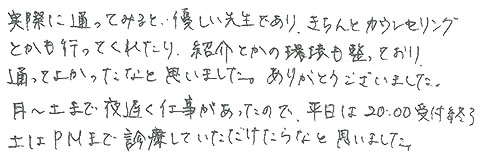 実際に通ってみると、優しい先生であり、きちんとカウンセリング
とかも行ってくれたり、紹介とかの環境も整っており
通ってよかったなと思いました。ありがとうございました。
月〜土まで夜遅く仕事があったので、平日は20:00受付終了
土はPMまで診療していただけたらなと思いました。